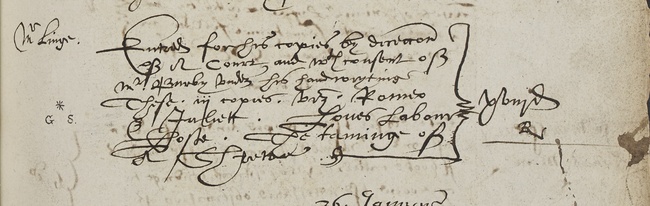 Mr Linge.
Entred for his copies by direccon
of A Court and wth consent of
Mr Burby vnder his handwrytinge
These . iij copies . viz . Romeo
& Juliett . Loues Labour
Loste . The taminge of
A Shrewe
xviijd
R
*
G S.
Januarij